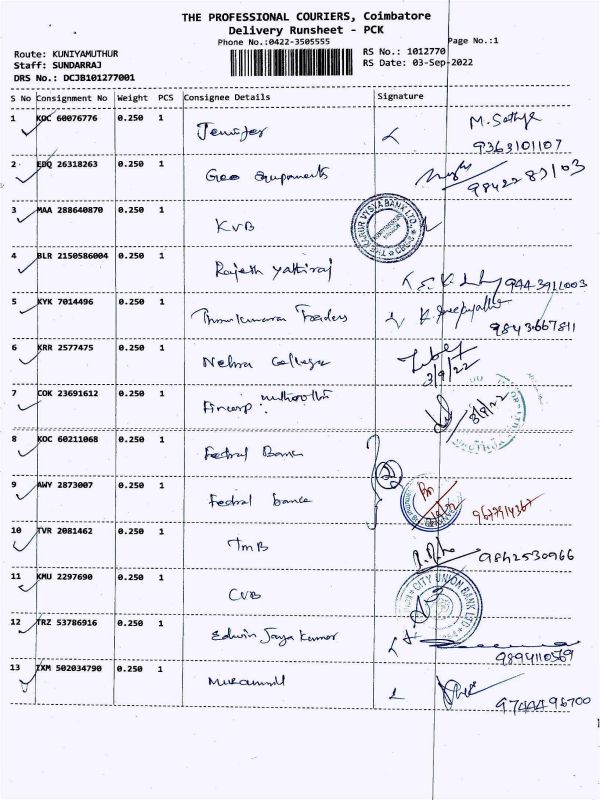 THE PROFESSIONAL COURIERS, Coimbatore
Delivery Runsheet - PCK
Phone No.:0422-3505555
Page No.:1
Route: KUNIYAMUTHUR
Staff: SUNDARRAJ
DRS No.: DCJB101277001
RS No.: 1012770
RS Date: 03-Sep-2022
S No Consignment No Weight PCS Consignee Details Signature
1 KOC 60076776 0.250 1 Jenifer M. Sathya
9363101107
2 EDQ 26318263 0.250 1 Geo
3 MAA 288640870 0.250 1 KVB THE KARUR VYSYA BANK LTD.
4 BLR 2150586004 0.250 1 Rajesh Yathiraj 9443911003
5 KYK 7014496 0.250 1 Traders
9843667811
6 KRR 2577475 0.250 1 Nehru College
3/9/22
7 COK 23691612 0.250 1 Fincorp Muthoottu
8 KOC 60211068 0.250 1 Fedral Bank
9 AWY 2873007 0.250 1 Fedral bank
10 TVR 2081462 0.250 1 TMB 9842530966
11 KMU 2297690 0.250 1 CUB CITY UNION BANK LTD
12 TRZ 53786916 0.250 1 Edwin Jaya Kumar
9894110569
13 IXM 502034790 0.250 1
9744496700